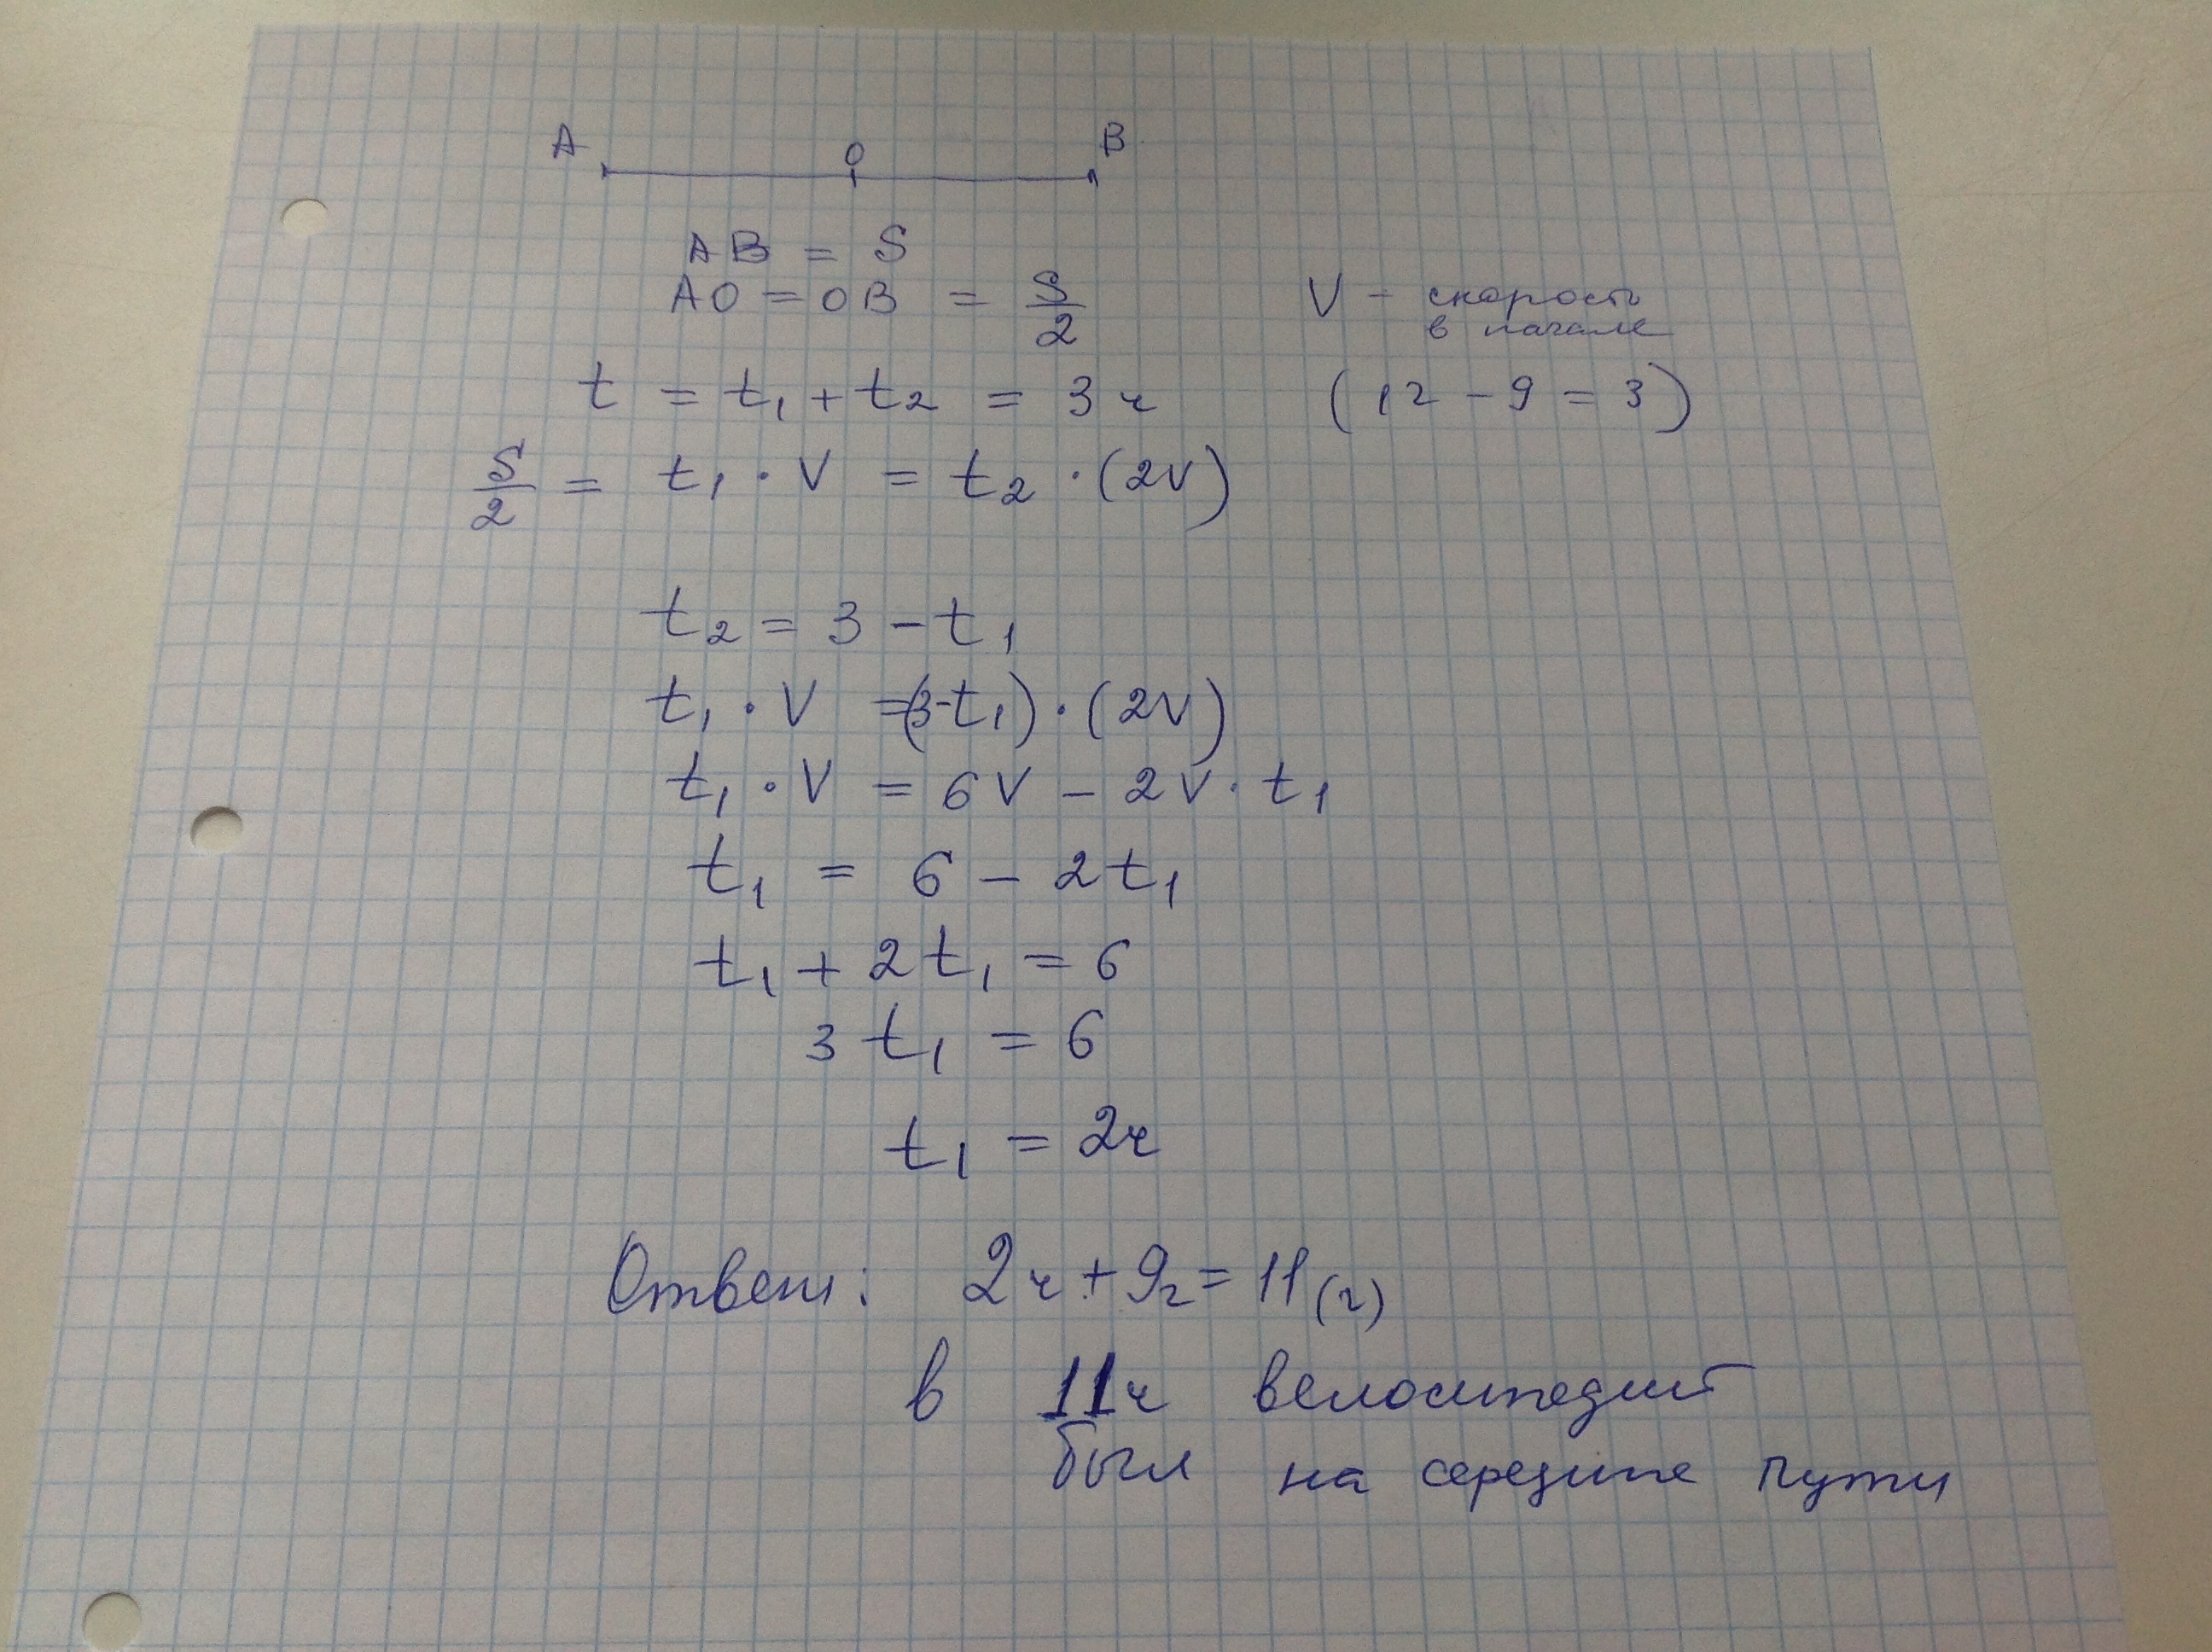 A O B
AB = S
AO = OB = S/2
V - скорость
в начале
t = t₁ + t₂ = 3ч (12 - 9 = 3)
S/2 = t₁ · V = t₂ · (2V)
t₂ = 3 - t₁
t₁ · V = (3-t₁) · (2V)
t₁ · V = 6V - 2V · t₁
t₁ = 6 - 2t₁
t₁ + 2t₁ = 6
3t₁ = 6
t₁ = 2ч
Ответ: 2ч + 9ч = 11(ч)
в 11ч велосипедист
был на середине пути